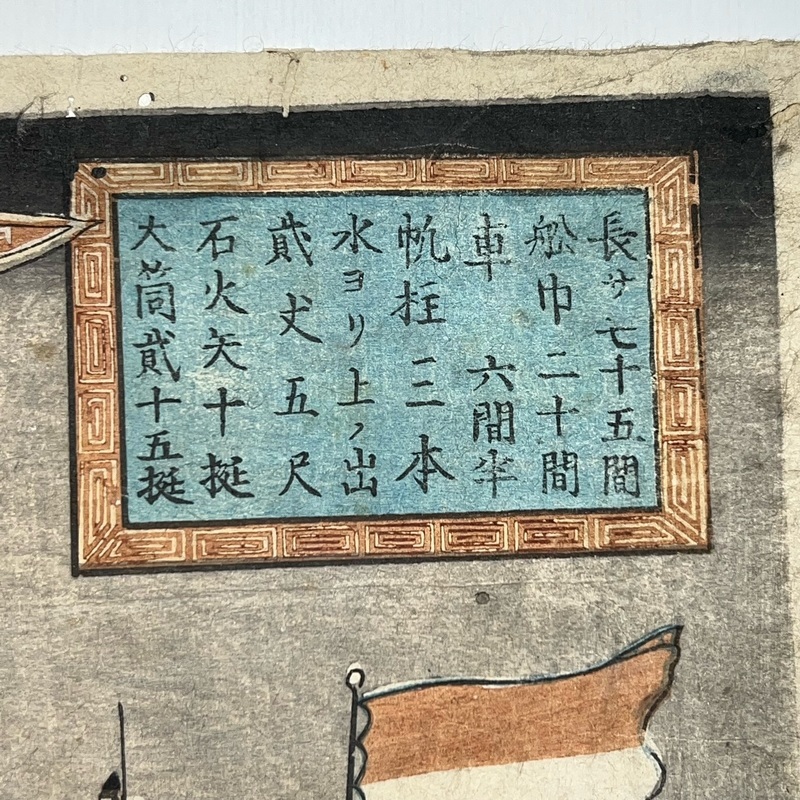 長サ七十五間
船巾二十間
車 六間半
帆柱三本
水ヨリ上ノ出
貮丈五尺
石火矢十挺
大筒貮十五挺